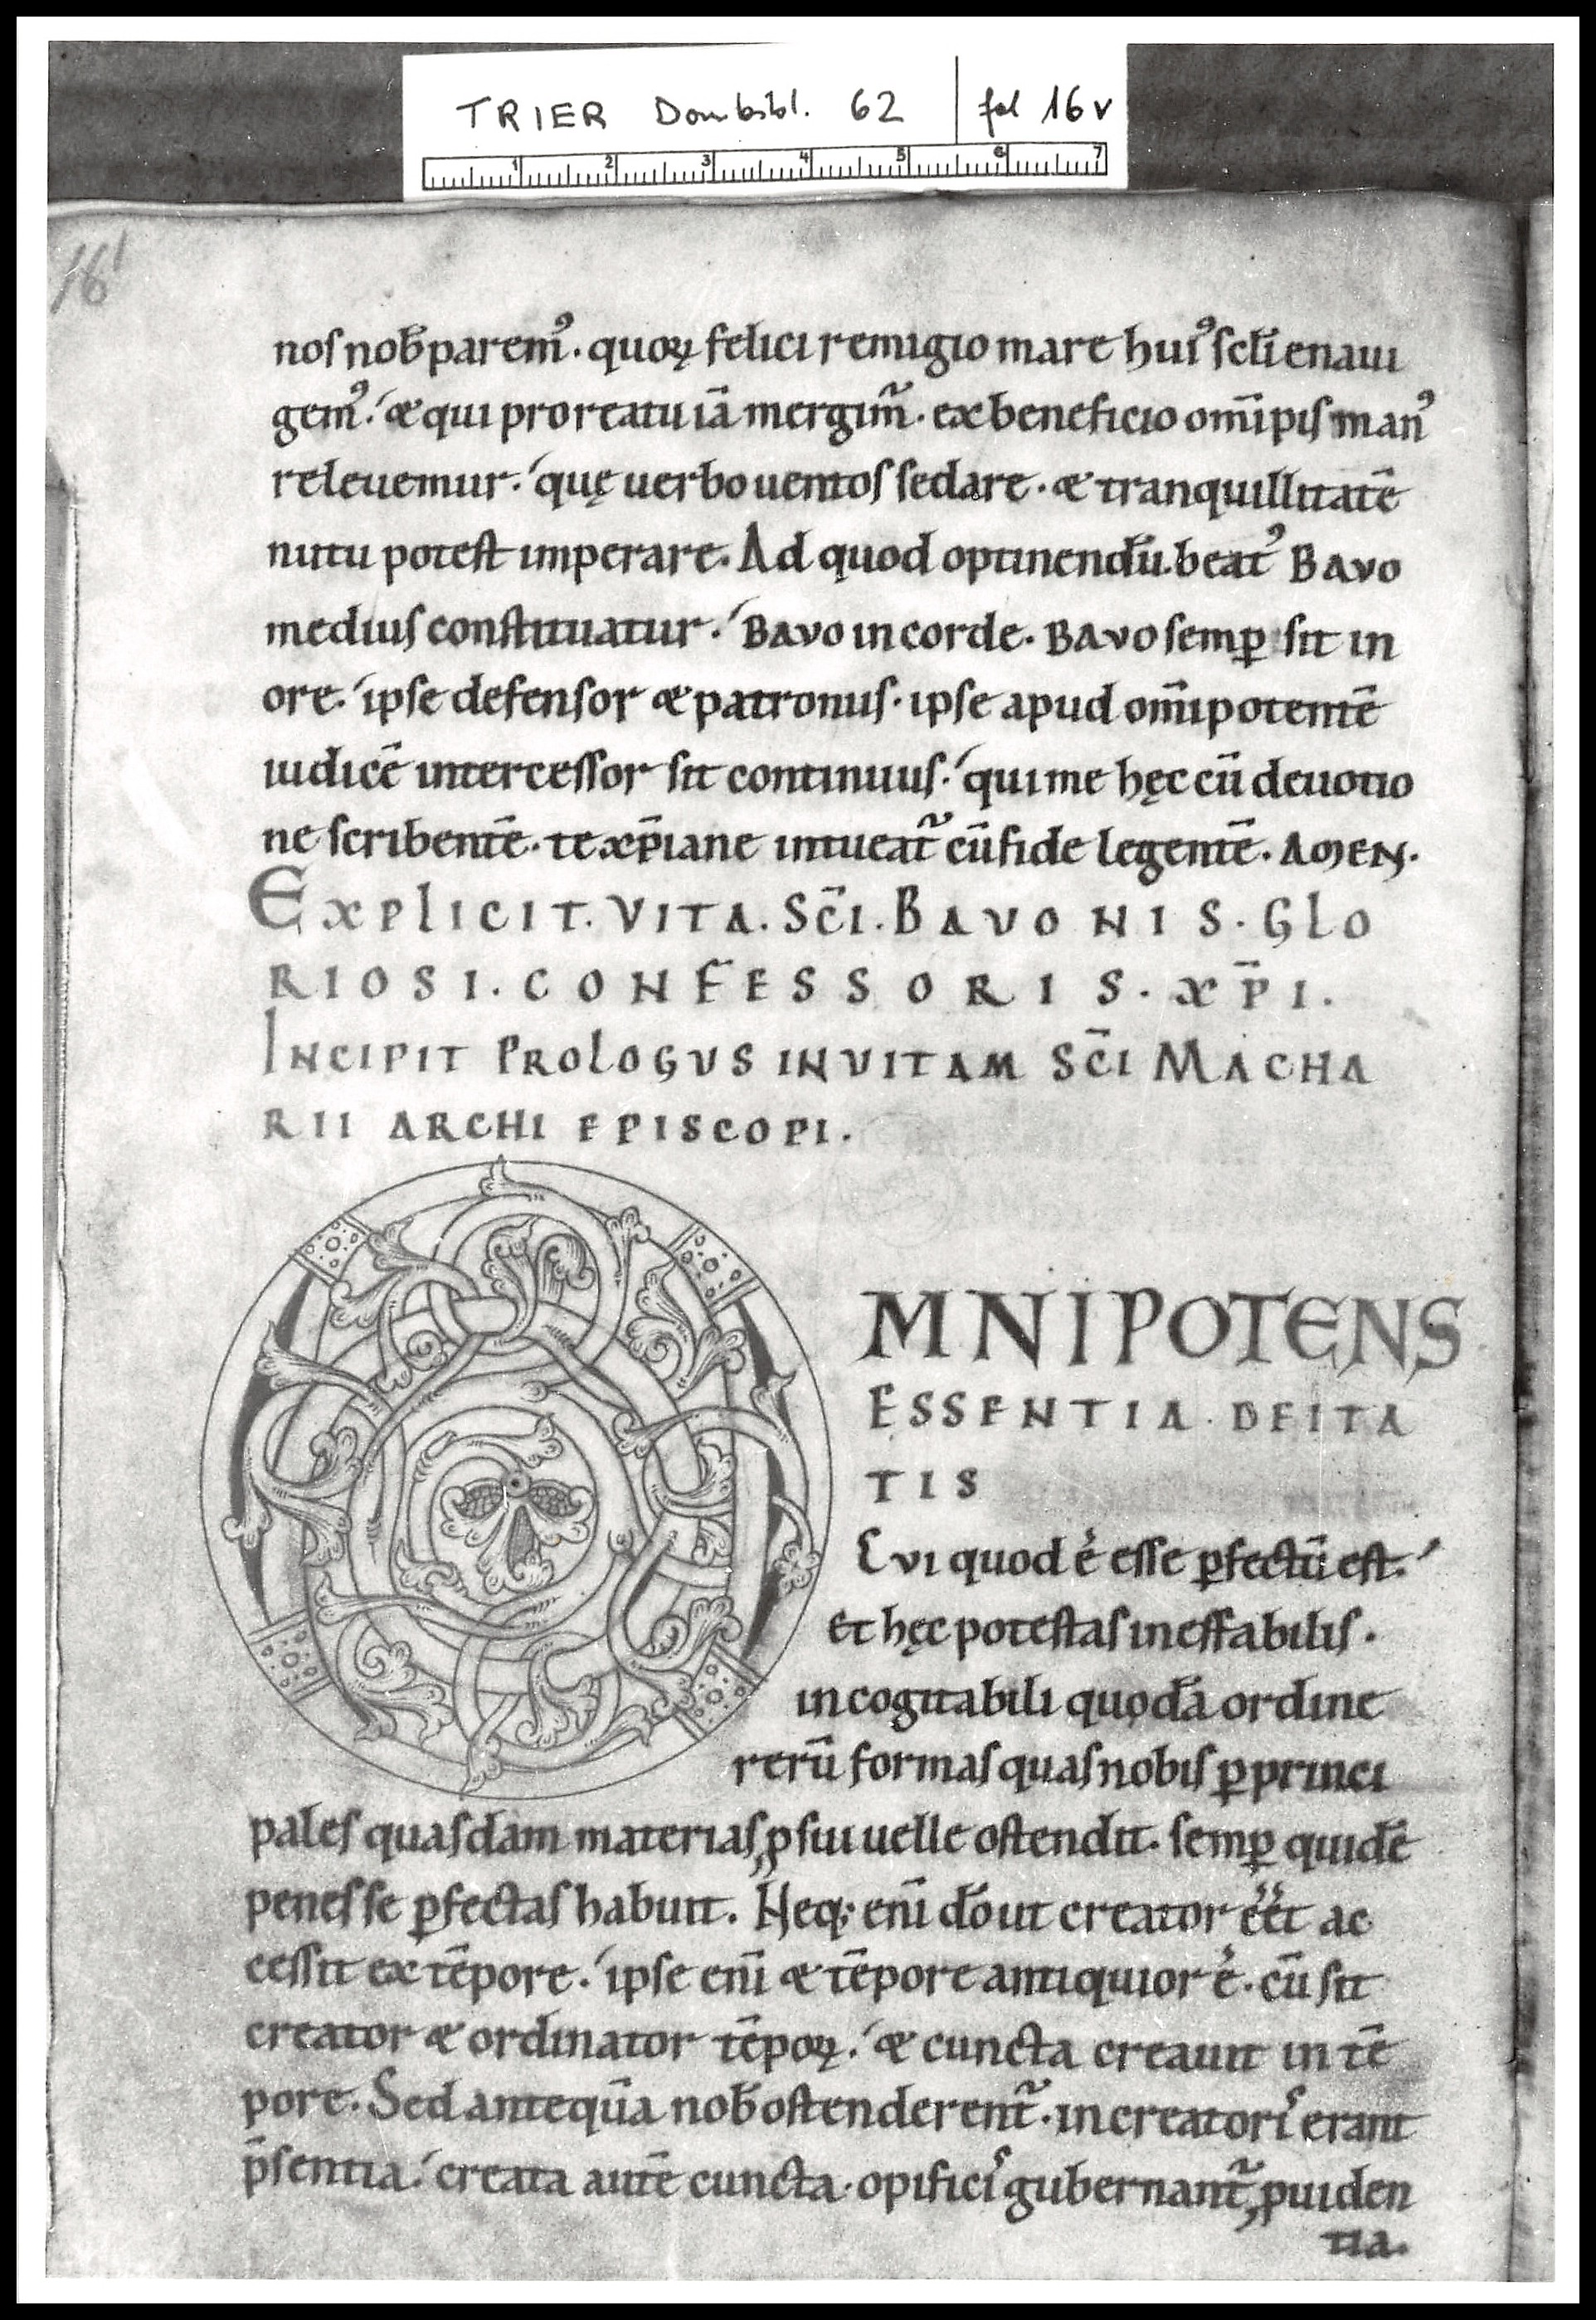 TRIER Dombibl. 62 | fol 16v
1 2 3 4 5 6 7
16'
nos nob̄ paremꝰ. quoꝝ felici remigio mare huiꝰ scl̄i enaui
gemꝰ. & qui pro reatu iā mergim̄. ex beneficio om̄ipis manꝰ
releuemur. quę uerbo uentos sedare. & tranquillitatē
nutu potest imperare. Ad quod optinendū. beatꝰ BAVO
medius constituatur. BAVO in corde. BAVO semꝑ sit in
ore. ipse defensor & patronus. ipse apud om̄ipotentē
iudicē intercessor sit continuus. qui me hęc cū deuotio
ne scribentē. te xp̄iane intueat᷑ cū fide legentē. AMEN.
EXPLICIT. VITA. SC̄I. BAVONIS. GLO
RIOSI. CONFESSORIS. XP̄I.
INCIPIT PROLOGVS IN VITAM SC̄I MACHA
RII ARCHI EPISCOPI.
OMNIPOTENS
ESSENTIA. DEITA
TIS
CVI quod ē esse ꝑfectū est.
Et hęc potestas ineffabilis.
incogitabili quodā ordine
rerū formas quas nobis ꝑ princi
pales quasdam materias, ꝓ sui uelle ostendit. semꝑ quidē
penes se ꝑfectas habuit. Neq; eni̅ dō ut creator eēt ac
cessit ex tēpore. ipse eni̅ & tēpore antiquior ē. cū sit
creator & ordinator tēpoꝝ. & cuncta creauit in tē
pore. Sed antequā nob̄ ostenderent᷑. in creatoris erant
p̄sentia. creata autē cuncta. opificis gubernant᷑ ꝓuiden
tia.